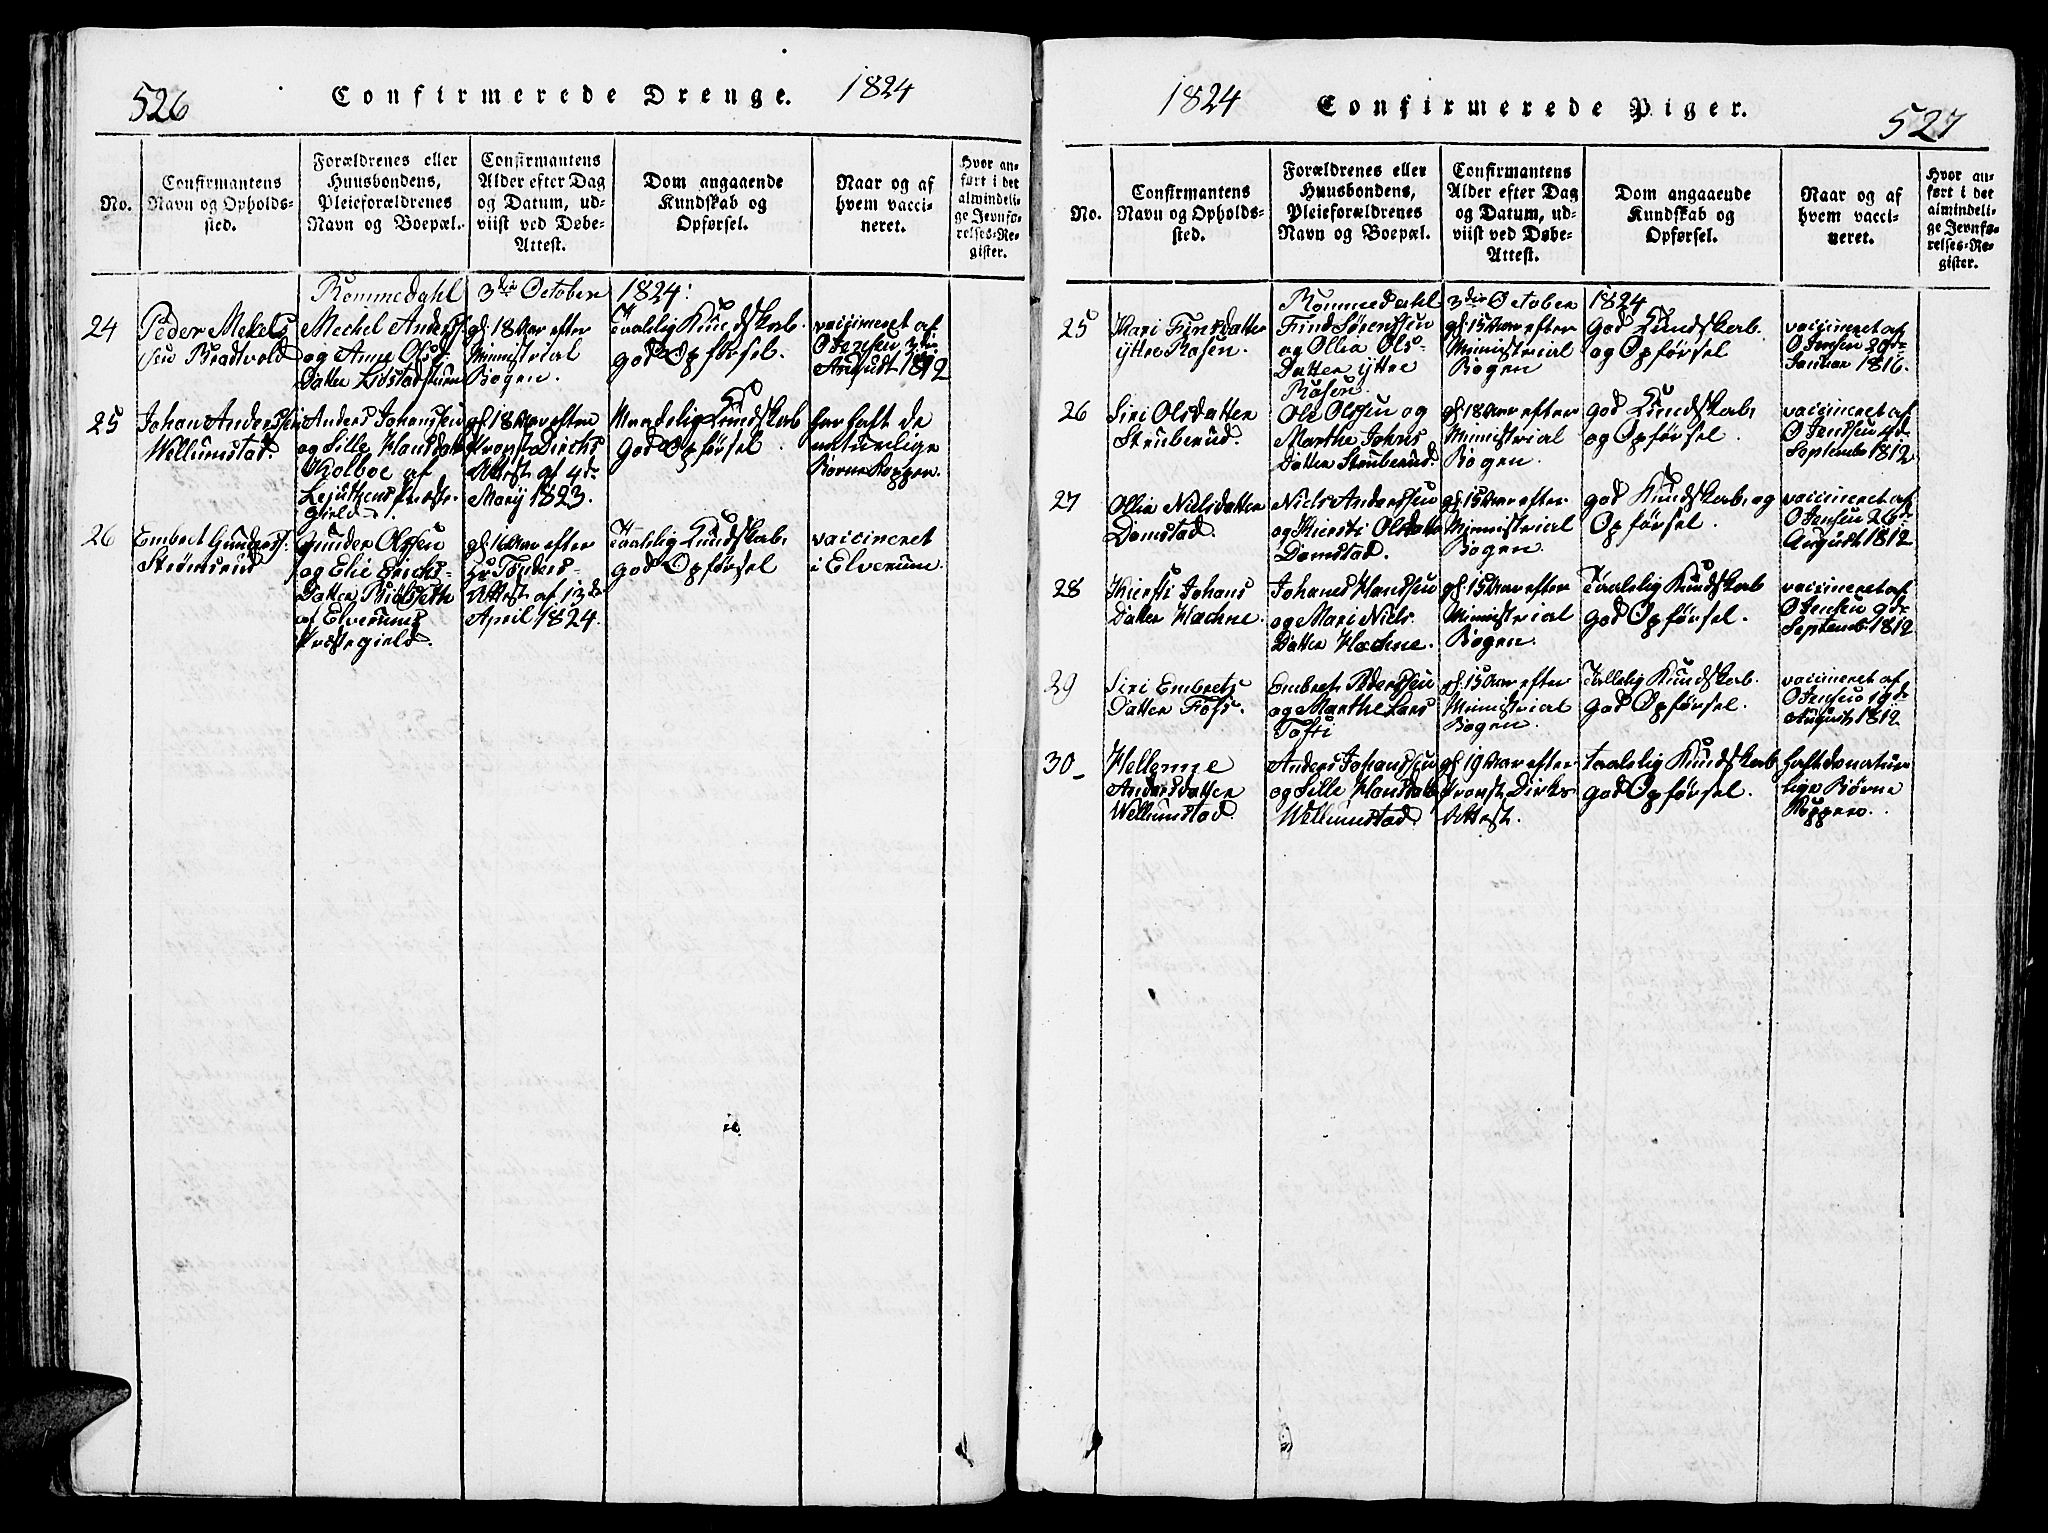 526
Confirmerede Drenge.
1824
No.
Confirmantens
Navn og Opholds-
sted.
Forældrenes eller
Huusbondens,
Pleieforældrenes
Navn og Boepæl.
Confirmantens
Alder efter Dag
og Datum, ud-
viist ved Døbe-
Attest.
Dom angaaende
Kundskab og
Opførsel.
Naar og af
hvem vacci-
neret.
Hvor an-
ført i det
almindeli-
ge Jevnfø-
relses-Re-
gister.
Rommedahl 3die October 1824:
24
Peder Mekels
sen Bradtvold
Mechel Anders
og Anne Ols
Datter
gl. 18 Aar efter
Ministerial
Bogen.
Taalelig Kundskab.
god Opførsel.
vaccineret af
O Jensen
August 1812
25
Johan Anderssen
Wellumstad.
Anders Johanssen
og Sille Hansdatt
Kolboe af
Præste-
gield
gl. 18 Aar efter
Provst Dircks
Attest af 4de
Marj 1823.
Maadelig Kundskab
god Opførsel
har haft de
naturlige
BørneKopper.
26
Embret Gunders.
Strømsein
Gunder Olssen
og Elie Erichs-
Datter Biølseth
af Elverums
Præstegield.
gl. 16 Aar efter
Hr Tønders-
Attest af 13de
April 1824.
Taalelig Kundskab,
god Opførsel
vaccineret
i Elverum.
1824
Confirmerede Piger.
527
No.
Confirmantens
Navn og Opholds-
sted.
Forældrenes eller
Huusbondens,
Pleieforældrenes
Navn og Boepæl.
Confirmantens
Alder efter Dag
og Datum, ud-
viist ved Døbe-
Attest.
Dom angaaende
Kundskab og
Opførsel.
Naar og af
hvem vacci-
neret.
Hvor an-
ført i det
almindeli-
ge Jevnfø-
relses-Re-
gister.
Rommedahl 3die October 1824
25
Mari Finsdatter
ytre Rasen.
Find Sørenssen
og Ollia Ols-
Datter ytre
Rasen.
gl. 15 Aar efter
Ministerial
Bogen
god Kundskab.
og Opførsel
vaccineret af
O Jensen 20de
Januar 1816.
26
Siri Olsdatter
Struberud.
Ole Olssen og
Marthe Johns
Datter Struberud.
gl. 18 Aar efter
Ministerial
Bogen.
god Kundskab,
og Opførsel.
vaccineret af
O Jensen 4de
Septembr 1812
27
Ollia Nielsdatter
Domstad.
Niels Anderssen
og Kiersti Olsdatter
Domstad.
gl. 15 Aar efter
Ministerial
Bogen.
god Kundskab, og
Opførsel.
vaccineret af
O Jensen 26de
August 1812
28
Kiersti Johans
Datter Hachne.
Johanes Hanssen
og Mari Niels
Datter Hachne.
gl. 15 Aar efter
Ministerial
Bogen.
Taalelig Kundskab
god Opførsel.
vaccineret af
O Jensen 9de
Septemb. 1812
29
Siri Embrets
Datter Tofs.
Embret Pederssen
og Marthe Lars
Tofti
gl. 15 Aar efter
Ministerial
Bogen.
Taalelig Kundskab.
god Opførsel.
vaccineret af
O Jensen 19de
August 1812
30
Hellenne
Andersdatter
Wellumstad.
Anders Johanssen
og Sille Hansdatt
Wellumstad.
gl. 19 Aar efter
Provst Dirks
Attest.
taalelig Kundskab
god Opførsel.
Haft de natur
lige Børne
Kopper.